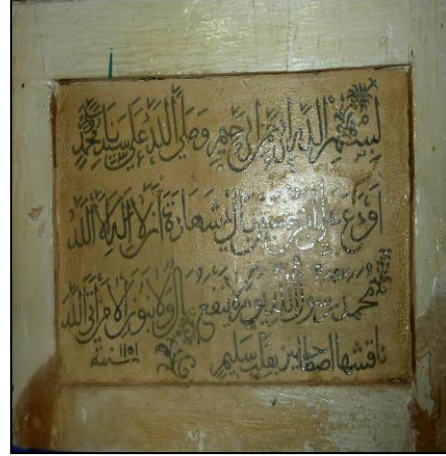 بسم الله الرحمن الرحيم وصلى الله على سيدنا محمد
اودع علي الشهادة أن لا إله إلا الله
محمد رسول الله يوم لا ينفع مال ولا بنون الا من أتى الله
ناقشها بقلب سليم سنة